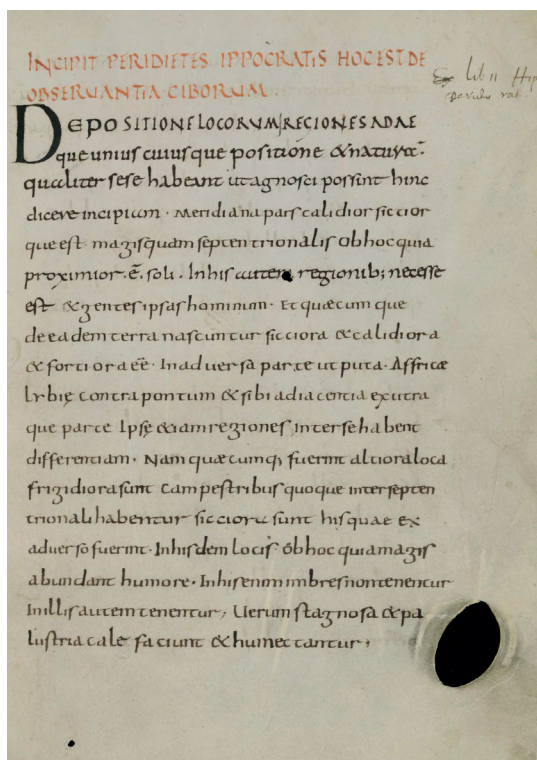 INCIPIT PERIDIETES IPPOCRATIS HOC EST DE
OBSERUANTIA CIBORUM.
DE POSITIONE LOCORUM, REGIONES ADAE
que unius cuiusque positione & naturae.
qualiter sese habeant ut agnosci possint hinc
dicere incipiam. Meridiana pars calidior siccior
que est magis quam septentrionalis Ob hoc quia
proximior. ē. soli. In his autem regionib; necesse
est & gentes ipsas hominum. Et quaecum que
de eadem terra nascuntur sicciora & calidiora
& fortiora eē. In aduersa parte ut puta. Affricae
Lybię contra pontum & sibi adiacentia ex utra
que parte Ipsę etiam regiones inter se habent
differentiam. Nam quaecumq; fuerint altiora loca
frigidiora sunt Campestribus quoque inter septen
trionali habentur sicciora sunt his quae ex
aduerso fuerint. In hisdem locis Ob hoc quia magis
abundant humore. In his enim imbres non tenentur
In illis autem tenentur; Uerum stagnosa & pa
lustria cale faciunt & humectantur;
Ex lib II Hip